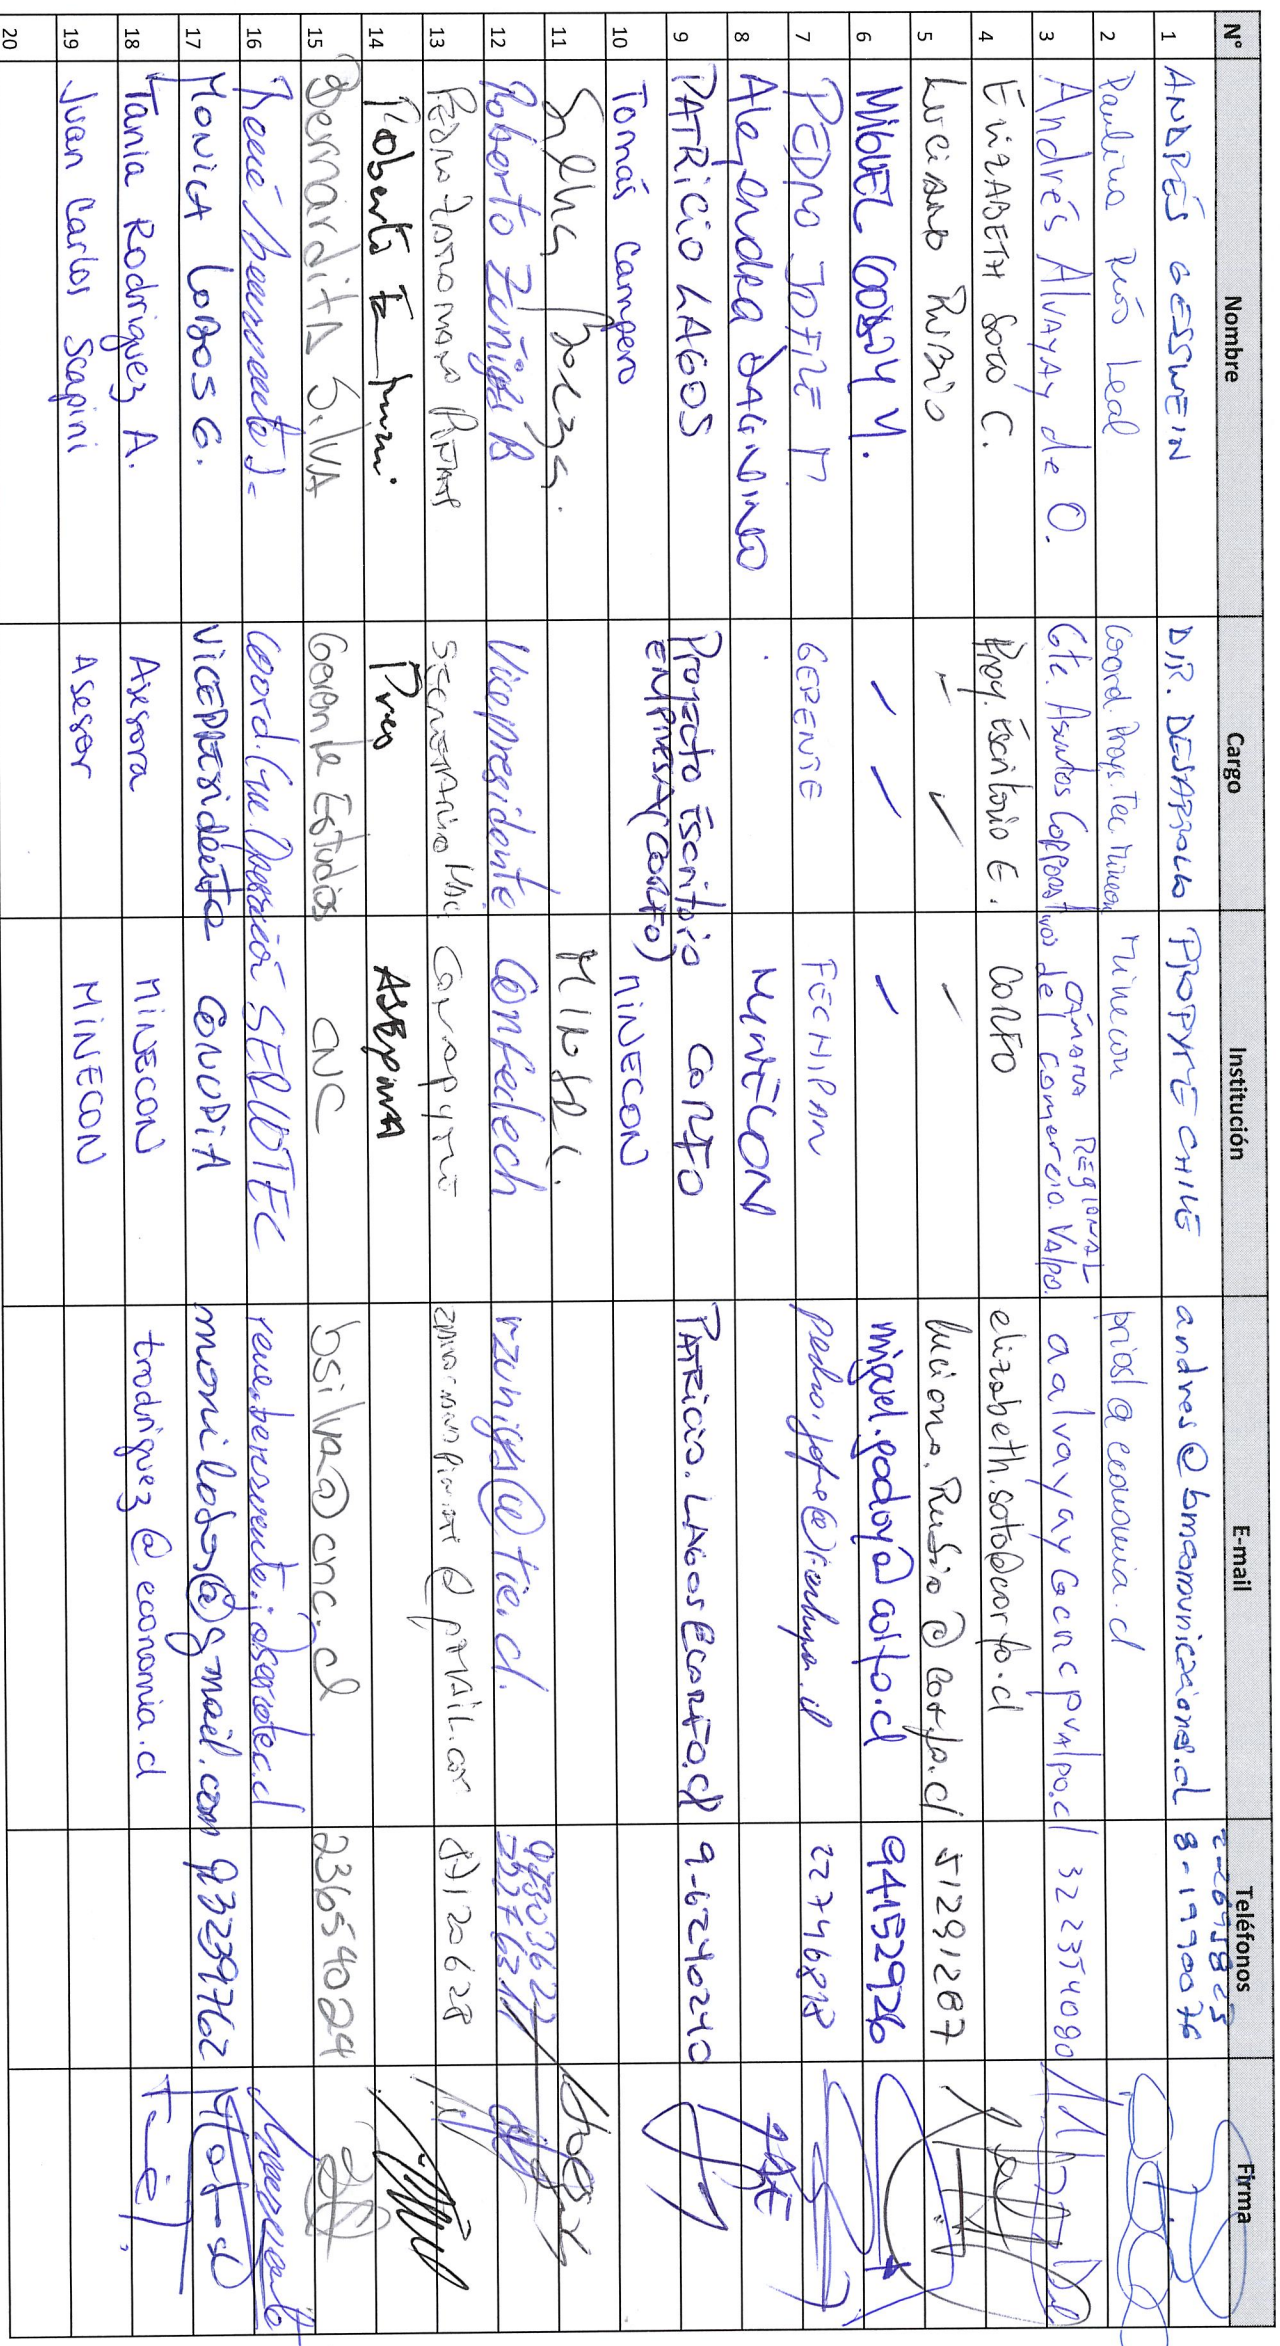 N° Nombre Cargo Institución E-mail Teléfonos Firma
1 ANDRÉS GESSWEIN DIR. DESARROLLO PROPYME CHILE andres@bmcomunicaciones.cl 8-1990076
2 Paulina Ríos Leal Coord. Proys. Tec. Minecon Minecon priosl@economia.cl
3 Andrés Alvayay de O. Gte. Asuntos Corporativos CÁMARA REGIONAL de comercio. Valpo. aalvayay@crcpvalpo.cl 32 2354080
4 ELIZABETH Soto C. Proy. Escritorio E. CORFO elizabeth.soto@corfo.cl
5 Luciano Rubio luciano.Rubio@corfo.cl 51291287
6 MIGUEL GODOY Y. miguel.godoy@corfo.cl 94152926
7 PEDRO JOFRE M GERENTE FECHIPAN pedro.jofre@ 22746818
8 Alejandra DAGNINO MINECON
9 PATRICIO LAGOS Proyecto Escritorio EMPRESA (CORFO) CORFO PATRICIO.LAGOS@CORFO.cl 9-6240240
10 Tomás Campero MINECON
11
12 Roberto Zúñiga B Vicepresidente Confedech rzuniga@tie.cl.
13 Conapyme
14 Roberto Pres ASEPYMA
15 Bernardita Silva Gerente Estudios CNC bsilva@cnc.cl 23654024
16 René SERCOTEC
17 Monica Lobos G. VICEPRESIDENTE CONUPIA monilobos@gmail.com 93239762
18 Tania Rodriguez A. Asesora MINECON trodriguez@economia.cl
19 Juan Carlos Scapini Asesor MINECON
20